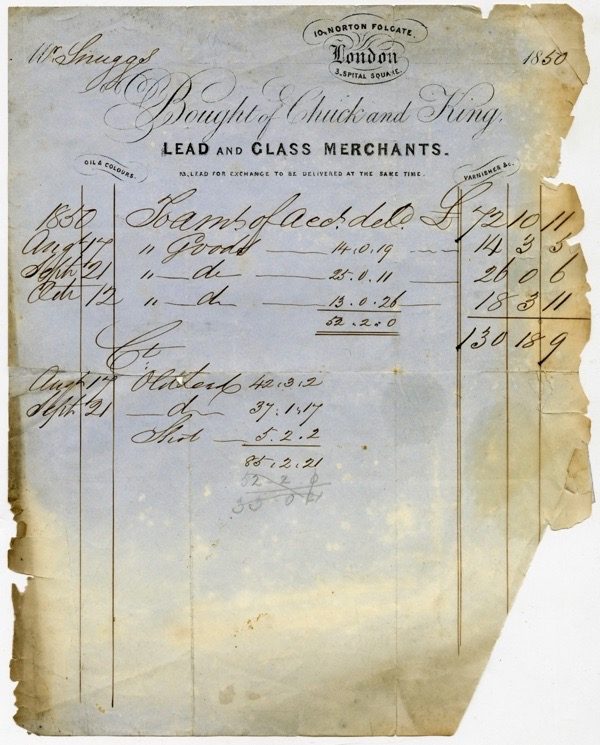 10, NORTON FOLGATE.
London
3, SPITAL SQUARE.
Mr. Snuggs
1850
Bought of Chuck and King.
LEAD AND GLASS MERCHANTS.
OIL & COLOURS.
VARNISHES &c.
LEAD FOR EXCHANGE TO BE DELIVERED AT THE SAME TIME.
1850 To amt. of acct. deld. £ 72 10 11
Augt 17 " Goods 14.0.19 14 3 5
Septr 21 " d 25.0.11 26 0 6
Octr 12 " d 13.0.26 18 3 11
52.2.0 130 18 9
Ct
Augt 17 Old Lead 42.3.2
Septr. 21 d 37.1.17
5.2.2
85.2.21
52 2 0
33 0 21